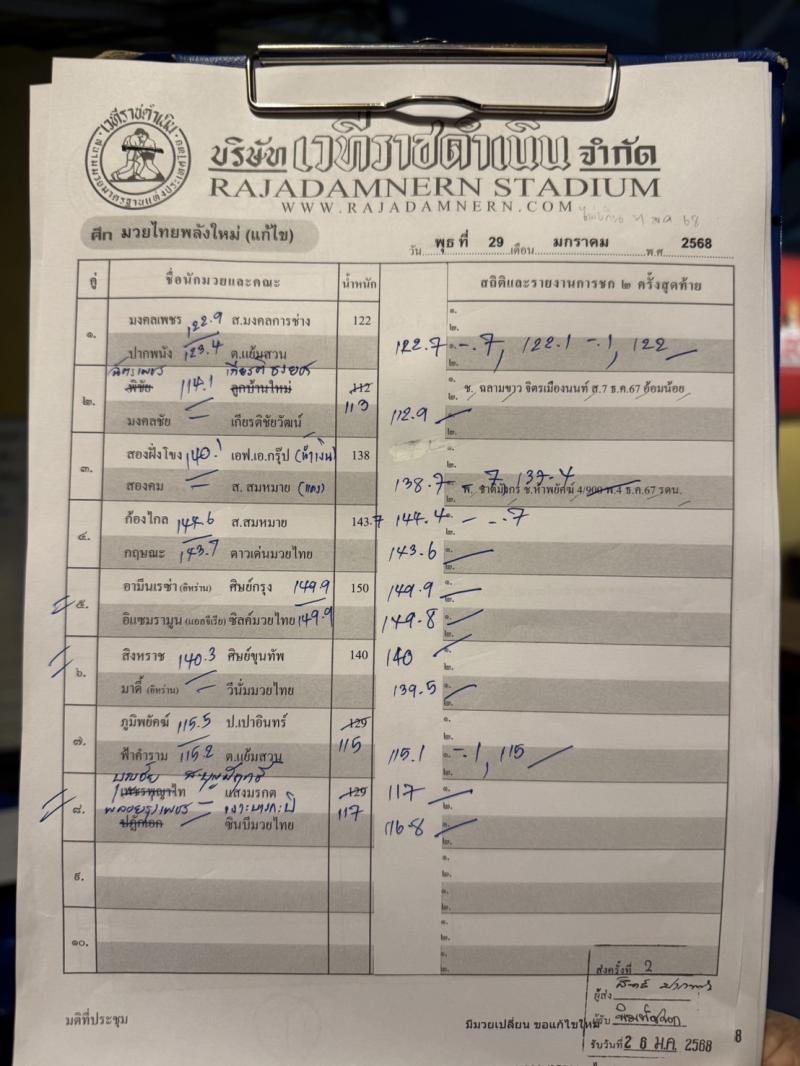 เวทีราชดำเนิน
บริษัท เวทีราชดำเนิน จำกัด
RAJADAMNERN STADIUM
WWW.RAJADAMNERN.COM
ศึก มวยไทยพลังใหม่ (แก้ไข)
วัน พุธ ที่ 29 เดือน มกราคม พ.ศ. 2568
คู่ ชื่อนักมวยและคณะ น้ำหนัก สถิติและรายงานการชก ๒ ครั้งสุดท้าย
๑. มงคลเพชร 122.9 ส.มงคลการช่าง 122 ๑. ๒.
ปากพนัง 123.4 ต.แย้มสวน 122.7 -.7, 122.1 -.1, 122 ๑. ๒.
ฉัตรเพชร
๒. พิชัย 114.1 ลูกบ้านใหม่ 112 113 ๑. ช. ฉลามขาว จิตรเมืองนนท์ ส.7 ธ.ค.67 อ้อมน้อย ๒.
มงคลชัย เกียรติชัยวัฒน์ 112.9 ๑. ๒.
๓. สองฝั่งโขง 140.1 เอฟ.เอ.กรุ๊ป (น้ำเงิน) 138 ๑. ๒.
สองคม ส. สมหมาย (แดง) 138.7 -.7, 137.4 ๑. ๒.
๔. ก้องไกล 144.6 ส.สมหมาย 143.7 144.4 - -.7 ๑. ๒.
กฤษณะ 143.7 ดาวเด่นมวยไทย 143.6 ๑. ๒.
๕. อามีนเรซ่า (อิหร่าน) ศิษย์กรุง 149.9 150 149.9 ๑. ๒.
อิแซมรามูน (แอลจีเรีย) ซิลค์มวยไทย 149.9 149.8 ๑. ๒.
๖. สิงหราช 140.3 ศิษย์ขุนทัพ 140 140 ๑. ๒.
มาดี้ (อิหร่าน) วีนั่มมวยไทย 139.5 ๑. ๒.
๗. ภูมิพยัคฆ์ 115.5 ป.เปาอินทร์ 129 115 ๑. ๒.
ฟ้าคำราม 115.2 ต.แย้มสวน 115.1 -.1, 115 ๑. ๒.
บุญชัย
๘. แสงมรกต 129 117 117 ๑. ๒.
ซินบีมวยไทย 116.8 ๑. ๒.
๙. ๑. ๒.
๑. ๒.
๑๐. ๑. ๒.
๑. ๒.
ส่งครั้งที่ 2
ผู้ส่ง
มติที่ประชุม มีมวยเปลี่ยน ขอแก้ไขใหม่ ผู้รับ 8
รับวันที่ 2 8 ม.ค. 2568